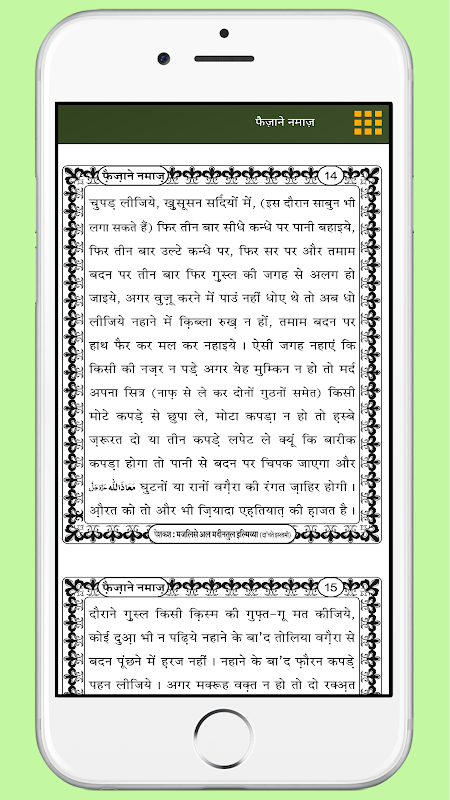 फैज़ाने नमाज़
फ़ैज़ाने नमाज़ 14
चुपड़ लीजिये, खुसूसन सर्दियों में, (इस दौरान साबुन भी
लगा सकते हैं) फिर तीन बार सीधे कन्धे पर पानी बहाइये,
फिर तीन बार उल्टे कन्धे पर, फिर सर पर और तमाम
बदन पर तीन बार फिर गुस्ल की जगह से अलग हो
जाइये, अगर वुज़ू करने में पाउं नहीं धोए थे तो अब धो
लीजिये नहाने में क़िब्ला रुख़ न हों, तमाम बदन पर
हाथ फैर कर मल कर नहाइये । ऐसी जगह नहाएं कि
किसी की नज़र न पड़े अगर येह मुम्किन न हो तो मर्द
अपना सित्र (नाफ़ से ले कर दोनों गुठनों समेत) किसी
मोटे कपड़े से छुपा ले, मोटा कपड़ा न हो तो हस्बे
ज़रूरत दो या तीन कपड़े लपेट ले क्यूं कि बारीक
कपड़ा होगा तो पानी से बदन पर चिपक जाएगा और
مَعَاذَاللّٰه عَزَّوَجَلَّ घुटनों या रानों वग़ैरा की रंगत ज़ाहिर होगी ।
औ़रत को तो और भी ज़ियादा एह़तियात़ की ह़ाजत है ।
पेशकश : मजलिसे अल मदीनतुल इल्मिय्या (दा'वते इस्लामी)
फ़ैज़ाने नमाज़ 15
दौराने गुस्ल किसी क़िस्म की गुफ़्त-गू मत कीजिये,
कोई दुआ़ भी न पढ़िये नहाने के बा'द तोलिया वग़ैरा से
बदन पूंछने में ह़रज नहीं । नहाने के बा'द फ़ौरन कपड़े
पहन लीजिये । अगर मक्रूह वक़्त न हो तो दो रक्अ़त